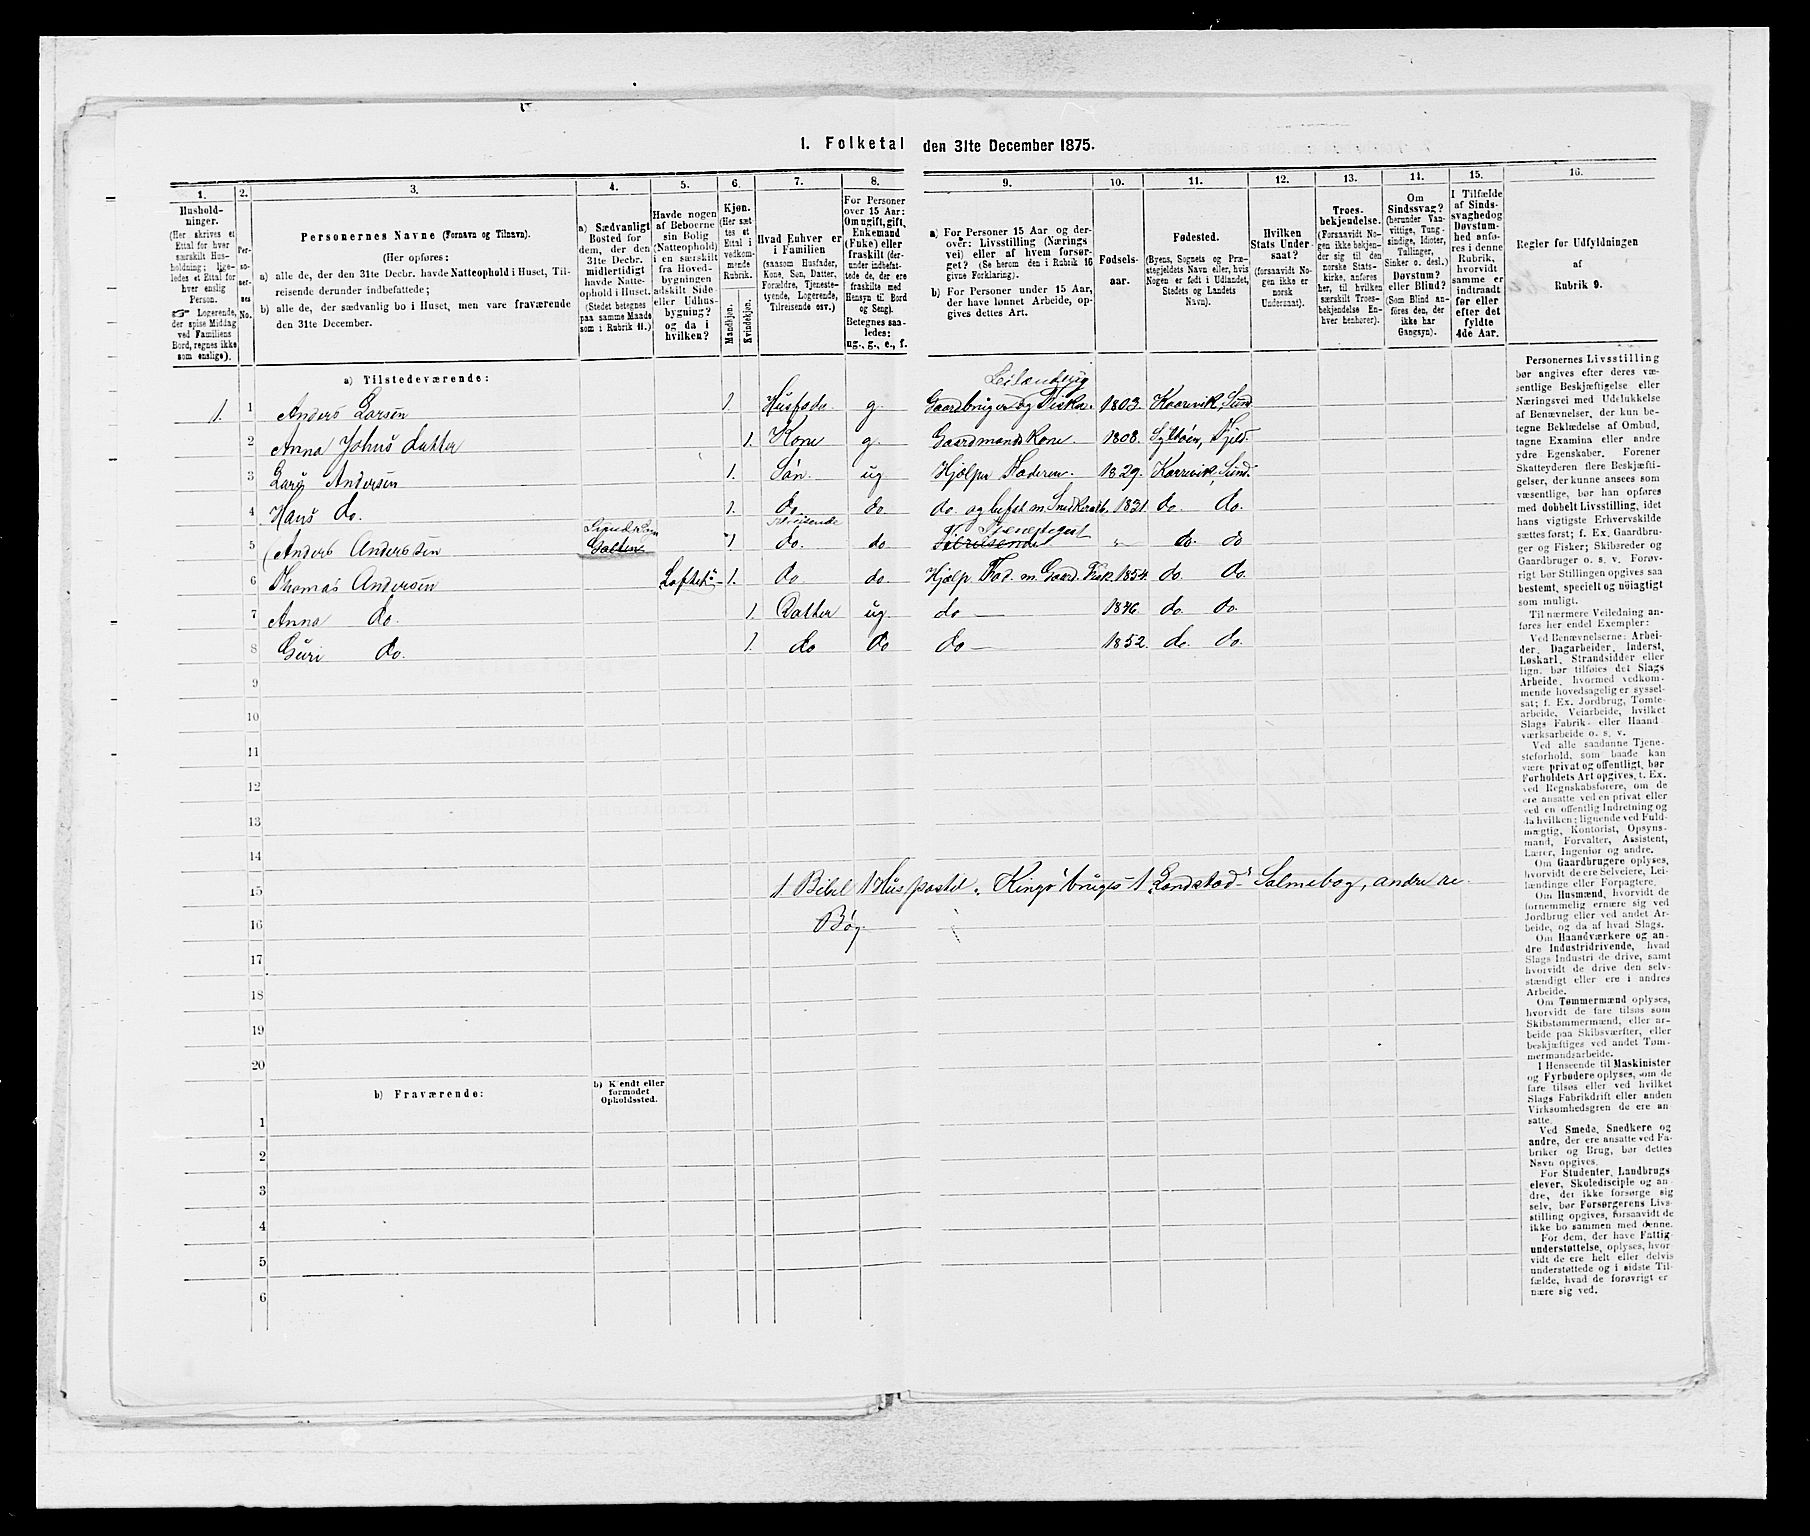 1. Folketal den 31te December 1875.
1. 2. 3. 4. 5. 6. 7. 8. 9. 10. 11. 12. 13. 14. 15. 16.
Hushold-
ninger.
(Her skrives et
Ettal for hver
særskilt Hus-
holdning; lige-
ledes et Ettal for
hver enslig
Person.
☞ Logerende,
der spise Middag
ved Familiens
Bord, regnes ikke
som enslige).
Per-
so-
ner-
nes
No.
Personernes Navne (Fornavn og Tilnavn).
(Her opføres:
a) alle de, der den 31te Decbr. havde Natteophold i Huset, Til-
reisende derunder indbefattede;
b) alle de, der sædvanlig bo i Huset, men vare fraværende
den 31te December.
a) Sædvanligt
Bosted for
dem, der den
31te Decbr.
midlertidigt
havde Natte-
ophold i Huset.
(Stedet betegnes
paa samme Maade
som i Rubrik 11.)
Havde nogen
af Beboerne
sin Bolig
(Natteophold)
i en særskilt
fra Hoved-
bygningen
adskilt Side
eller Udhus-
bygning?
og da i
hvilken?
Kjøn.
(Her sæt-
tes et
Ettal i
vedkom-
mende
Rubrik.
Mandkjøn.
Kvindekjøn.
Hvad Enhver er
i Familien
(saasom Husfader,
Kone, Søn, Datter,
Forældre, Tjeneste-
tyende, Logerende,
Tilreisende osv.)
For Personer
over 15 Aar:
Om ugift, gift,
Enkemand
(Enke) eller
fraskilt (der-
under indbefat-
tede de, der ere
fraskilte med
Hensyn til Bord
og Seng).
Betegnes saa-
ledes:
ug., g., e., f.
a) For Personer 15 Aar og der-
over: Livsstilling (Nærings
vei) eller af hvem forsør-
get? (Se herom den i Rubrik 16
givne Forklaring).
b) For Personer under 15 Aar,
der have lønnet Arbeide, op-
gives dettes Art.
Fødsels-
aar.
Fødested.
(Byens, Sognets og Præ-
stegjeldets Navn eller, hvis
Nogen er født i Udlandet,
Stedets og Landets
Navn).
Hvilken
Stats Under-
saat?
(forsaavidt No-
gen ikke er
norsk
Undersaat).
Troes-
bekjendelse.
(Forsaavidt No-
gen ikke bekjen-
der sig til den
norske Stats-
kirke, anføres
her, til hvilken
særskilt Troes-
bekjendelse En-
hver henhører).
Om
Sindssvag?
(herunder Van-
vittige, Tung-
sindige, Idioter,
Tullinger,
Sinker o. desl.)
Døvstum?
eller Blind?
(Som Blind an-
føres den, der
ikke har
Gangsyn).
I Tilfælde
af Sinds-
svaghed og
Døvstum-
hed anfø-
res i denne
Rubrik,
hvorvidt
samme er
indtraadt
før eller
efter det
fyldte
4de Aar.
Regler for Udfyldningen
af
Rubrik 9.
a) Tilstedeværende:
Leilænding
1. 1 Anders Larsen 1. Husfader g. Gaardbruger og Fisker. 1803. Kaarevik, Sund.
2 Anna Johns Datter 1. Kone g. Gaardmands Kone. 1808. Fjeld.
3 Lars Andersen 1. Søn. ug Hjelper Faderen. 1829. Kaarevik, Sund.
4 Hans do. 1. do. do do. og besk. m. Snedkerarb. 1831. do. do.
Tilreisende
5 (Anders Andersen Galten 1 do. do Tilreisende „ do. do
6 Thomas Andersen Loftet 1. do do Hjelp. Fad. m. Gaard. Fisk. 1854. do. do.
7 Anna do. 1. Datter ug. do — 1846. do. do.
8 Guri do. 1. do do do — 1852. do. do.
9
10
11
12
13
14
15 1 Bibel 1 Huspostil, „Kingo" bruges 1 „Landstad" Salmebog, andre re.
16 Bøg.
17
18
19
20
b) Fraværende:
b) Kjendt eller
formodet
Opholdssted.
1
2
3
4
5
6
Personernes Livsstilling
bør angives efter deres væ-
sentlige Beskjæftigelse eller
Næringsvei med Udelukkelse
af Benævnelser, der kun be-
tegne Beklædelse af Ombud,
tagne Examina eller andre
ydre Egenskaber. Forener
Skatteyderen flere Beskjæfti-
gelser, der kunne ansees som
væsentlige, bør han opføres
med dobbelt Livsstilling, idet
hans vigtigste Erhvervskilde
sættes først; f. Ex. Gaardbru-
ger og Fisker; Skibsreder og
Gaardbruger o. s. v. Forøv-
rigt bør Stillingen opgives saa
bestemt, specielt og nøiagtigt
som muligt.
Til nærmere Veiledning an-
føres her endel Exempler:
Ved Benævnelserne: Arbei-
der, Dagarbeider, Inderst,
Løskarl, Strandsidder eller
lign. bør tilføies det Slags
Arbeide, hvormed vedkom-
mende hovedsagelig er syssel-
sat; f. Ex. Jordbrug, Tomte-
arbeide, Veiarbeide, hvilket
Slags Fabrik- eller Haand-
værksarbeide o. s. v.
Ved alle saadanne Tjene-
steforhold, som baade kan
være privat og offentligt, bør
Forholdets Art opgives, t. Ex.
ved Regnskabsførere, om de
ere ansatte ved en privat eller
ved en offentlig Indretning og
da hvilken; lignende ved Fuld-
mægtig, Kontorist, Opsyns-
mand, Forvalter, Assistent,
Lærer, Ingeniør og andre.
Om Gaardbrugere oplyses,
hvorvidt de ere Selveiere, Lei-
lændinge eller Forpagtere.
Om Husmænd, hvorvidt de
fornemmelig ernære sig ved
Jordbrug eller ved andet Ar-
beide, og da af hvad Slags.
Om Haandværkere og an-
dre Industridrivende, hvad
Slags Industri de drive, samt
hvorvidt de drive den selv-
stændigt eller ere i andres
Arbeide.
Om Tømmermænd oplyses,
hvorvidt de fare tilsøs som
Skibstømmermænd, eller ar-
beide paa Skibsværfter, eller
beskjæftiges ved andet Tøm-
mermandsarbeide.
I Henseende til Maskinister
og Fyrbødere oplyses, om de
fare tilsøs eller ved hvilket
Slags Fabrikdrift eller anden
Virksomhedsgren de ere an-
satte.
Ved Smede, Snedkere og
andre, der ere ansatte ved Fa-
briker og Brug, bør dettes
Navn opgives.
For Studenter, Landbrugs
elever, Skoledisciple og an-
dre, der ikke forsørge sig
selv, bør Forsørgerens Livs-
stilling opgives, forsaavidt de
ikke bo sammen med denne.
For dem, der have Fattig-
understøttelse, oplyses, hvor-
vidt de ere helt eller delvis
understøttede og i sidste Til-
fælde, hvad de forøvrigt er
nære sig ved.